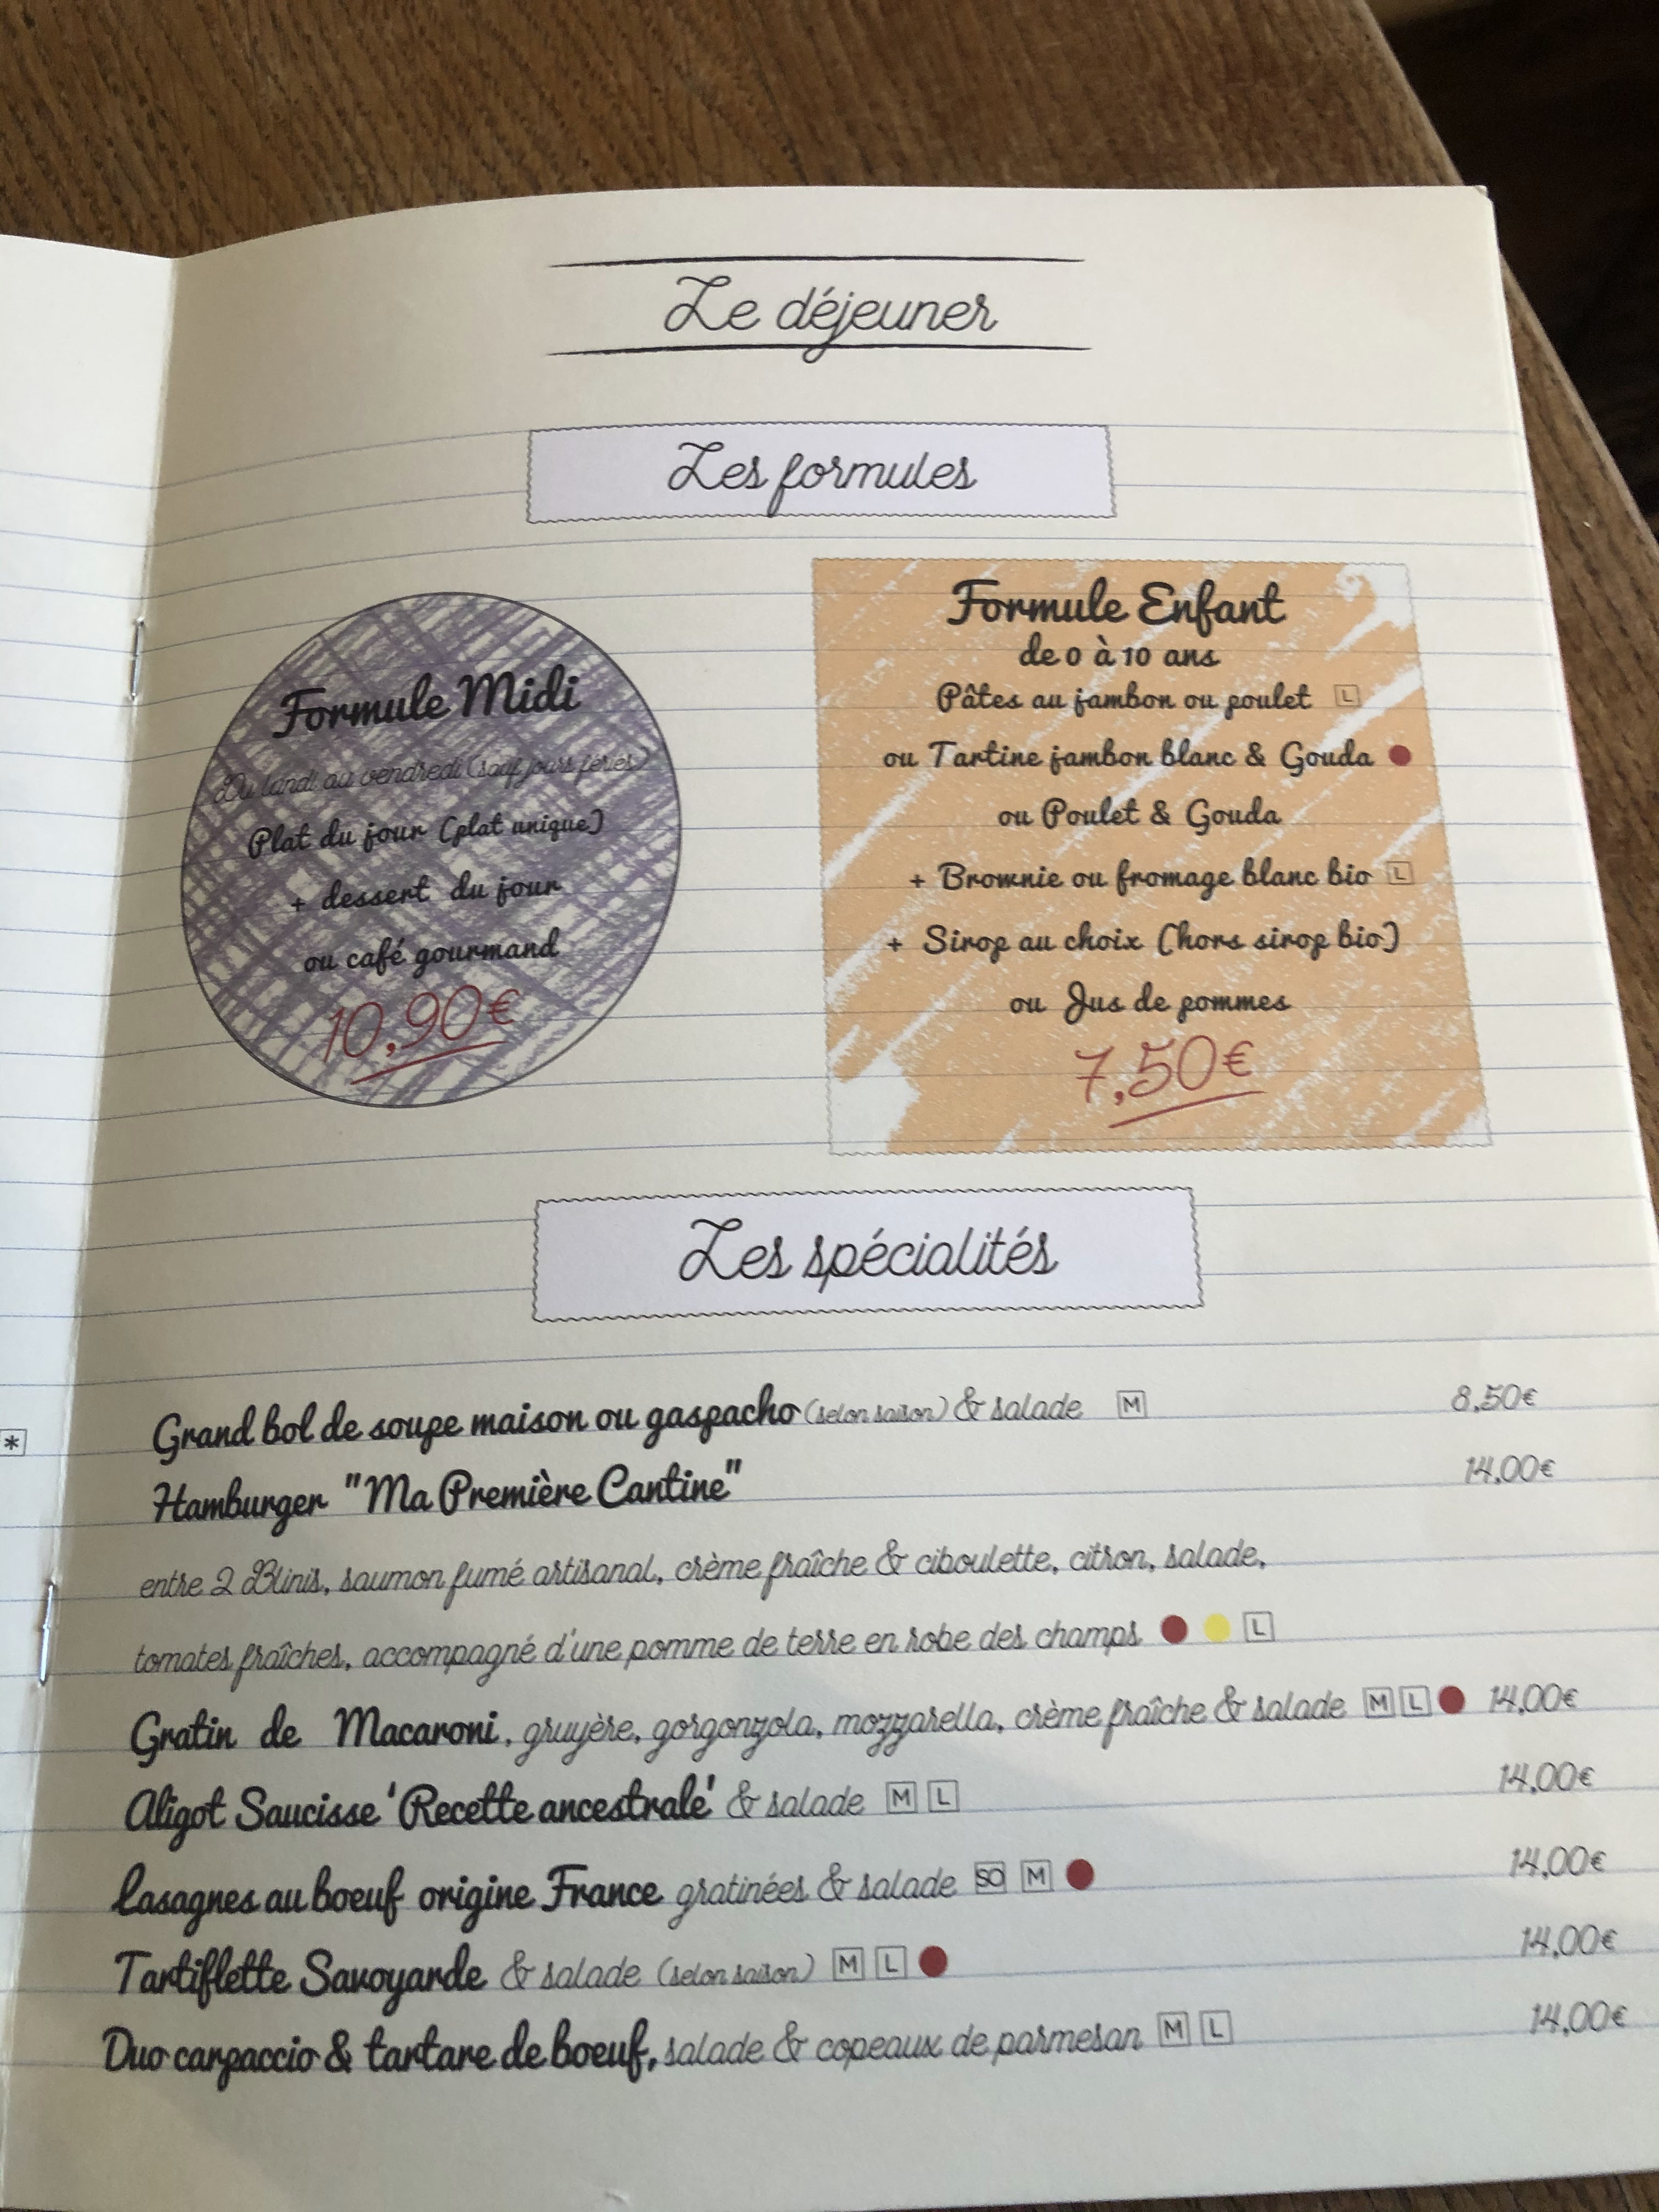 Le déjeuner
Les formules
Formule Midi
Du lundi au vendredi (sauf jours fériés)
Plat du jour (plat unique)
+ dessert du jour
ou café gourmand
10,90€
Formule Enfant
de 0 à 10 ans
Pâtes au jambon ou poulet L
ou Tartine jambon blanc & Gouda
ou Poulet & Gouda
+ Brownie ou fromage blanc bio L
+ Sirop au choix (hors sirop bio)
ou Jus de pommes
7,50€
Les spécialités
*
Grand bol de soupe maison ou gaspacho (selon saison) & salade M 8,50€
Hamburger "Ma Première Cantine" 14,00€
entre 2 Blinis, saumon fumé artisanal, crème fraîche & ciboulette, citron, salade,
tomates fraîches, accompagné d'une pomme de terre en robe des champs L
Gratin de Macaroni, gruyère, gorgonzola, mozzarella, crème fraîche & salade M L 14,00€
Aligot Saucisse 'Recette ancestrale' & salade M L 14,00€
Lasagnes au boeuf origine France gratinées & salade SO M 14,00€
Tartiflette Savoyarde & salade (selon saison) M L 14,00€
Duo carpaccio & tartare de boeuf, salade & copeaux de parmesan M L 14,00€